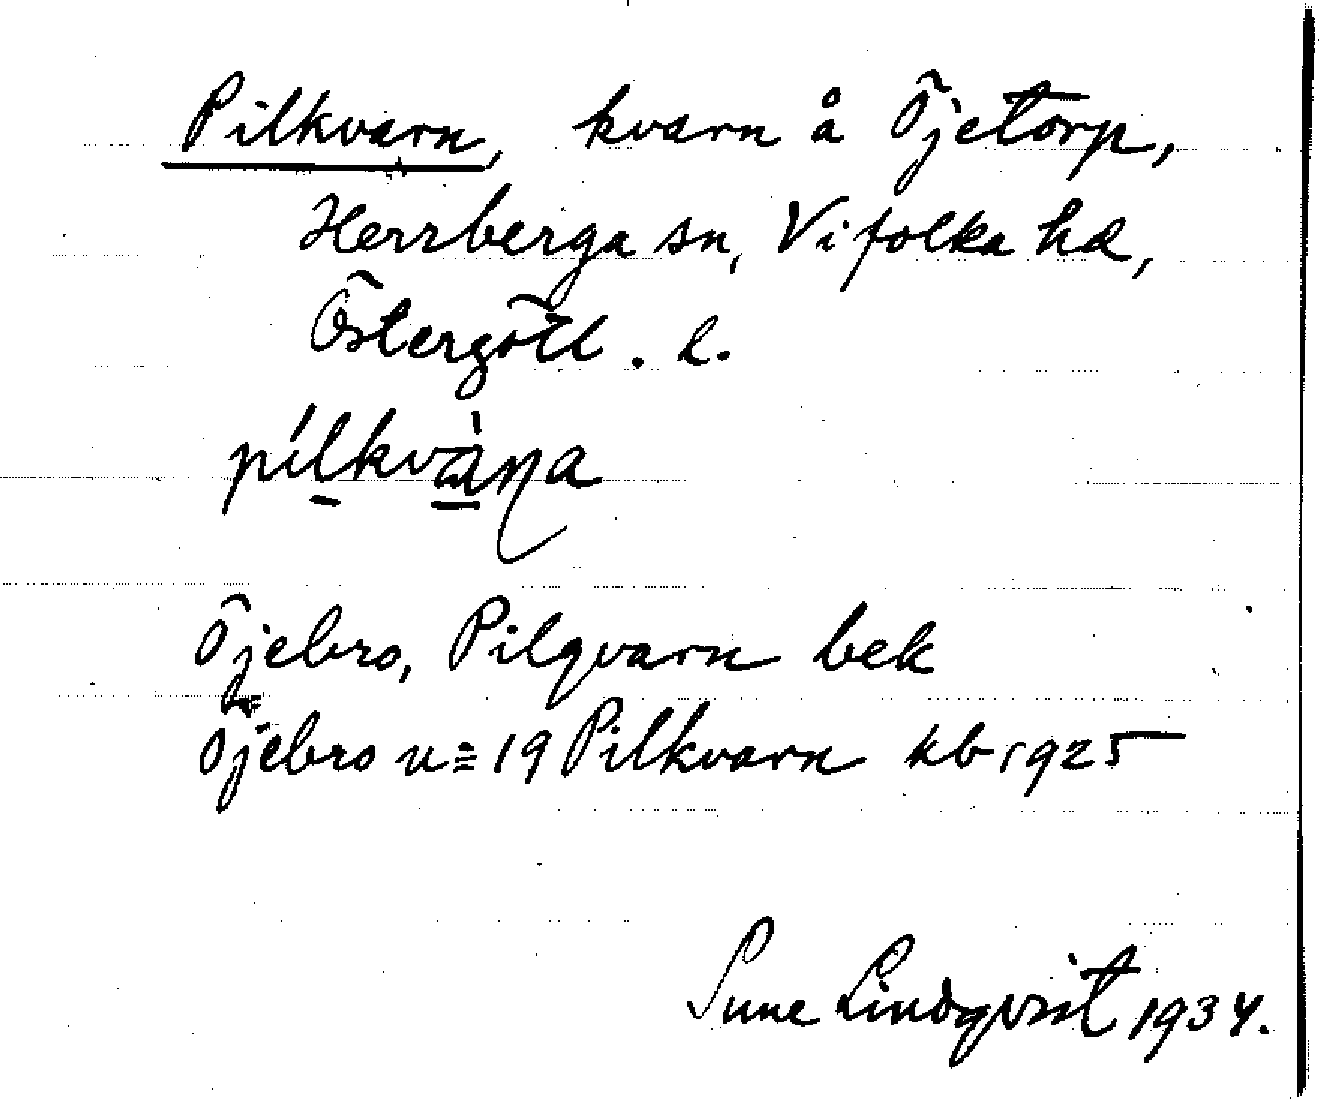 Pilkvarn, kvarn å Öjetorp,
Herrberga sn, Vifolka hd,
Östergötl. l.
pílkvàɳa
Öjebro, Pilqvarn bek
Öjebro n= 19 Pilkvarn kb 1925
Sune Lindqvist 1934.